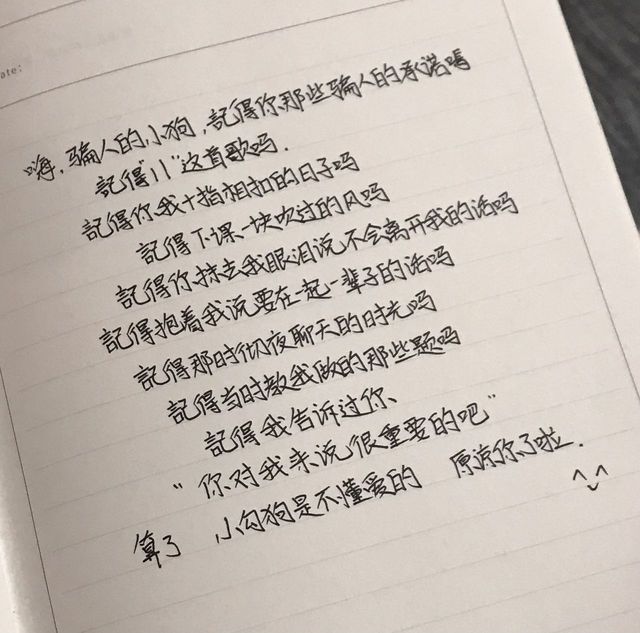 ate:
嗨，骗人的小狗，記得你那些骗人的承诺嗎
記得"11"这首歌吗.
記得你我十指相扣的日子吗
記得下课一块吹过的风吗
記得你抹去我眼泪说不会离开我的话吗
記得抱着我说要在一起一辈子的话吗
記得那时彻夜聊天的时光吗
記得当时教我做的那些题吗
記得我告诉过你、
"你对我来说很重要的吧"
算了 小勾狗是不懂爱的 原谅你了啦.